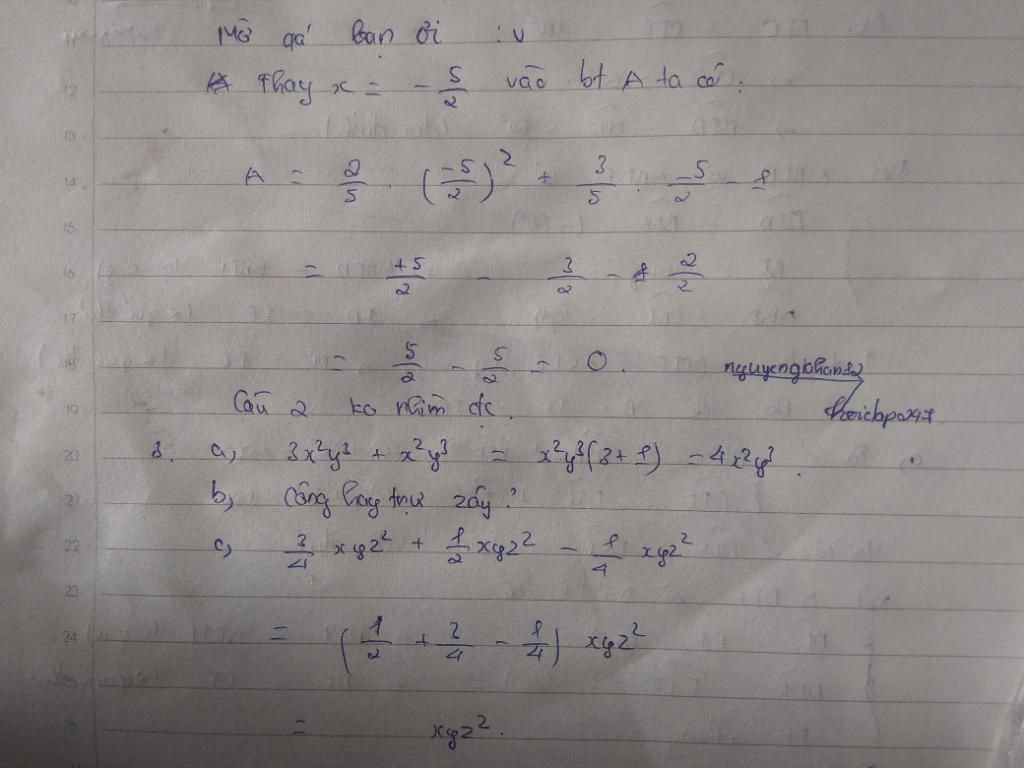 Mờ quá bạn ơi :v
Thay x = - 5/2 vào bt A ta có:
A = 2/5 . (-5/2)^2 + 3/5 . -5/2 - 1
= +5/2 - 3/2 - 2/2
= 5/2 - 5/2 = 0.
Câu 2 ko nhìn đc.
3. a, 3x^2y^3 + x^2y^3 = x^2y^3(3+1) = 4x^2y^3.
b, Cộng hay trừ zậy?
c, 3/4 xyz^2 + 1/2 xyz^2 - 1/4 xyz^2
= (1/2 + 3/4 - 1/4) xyz^2
= xyz^2.